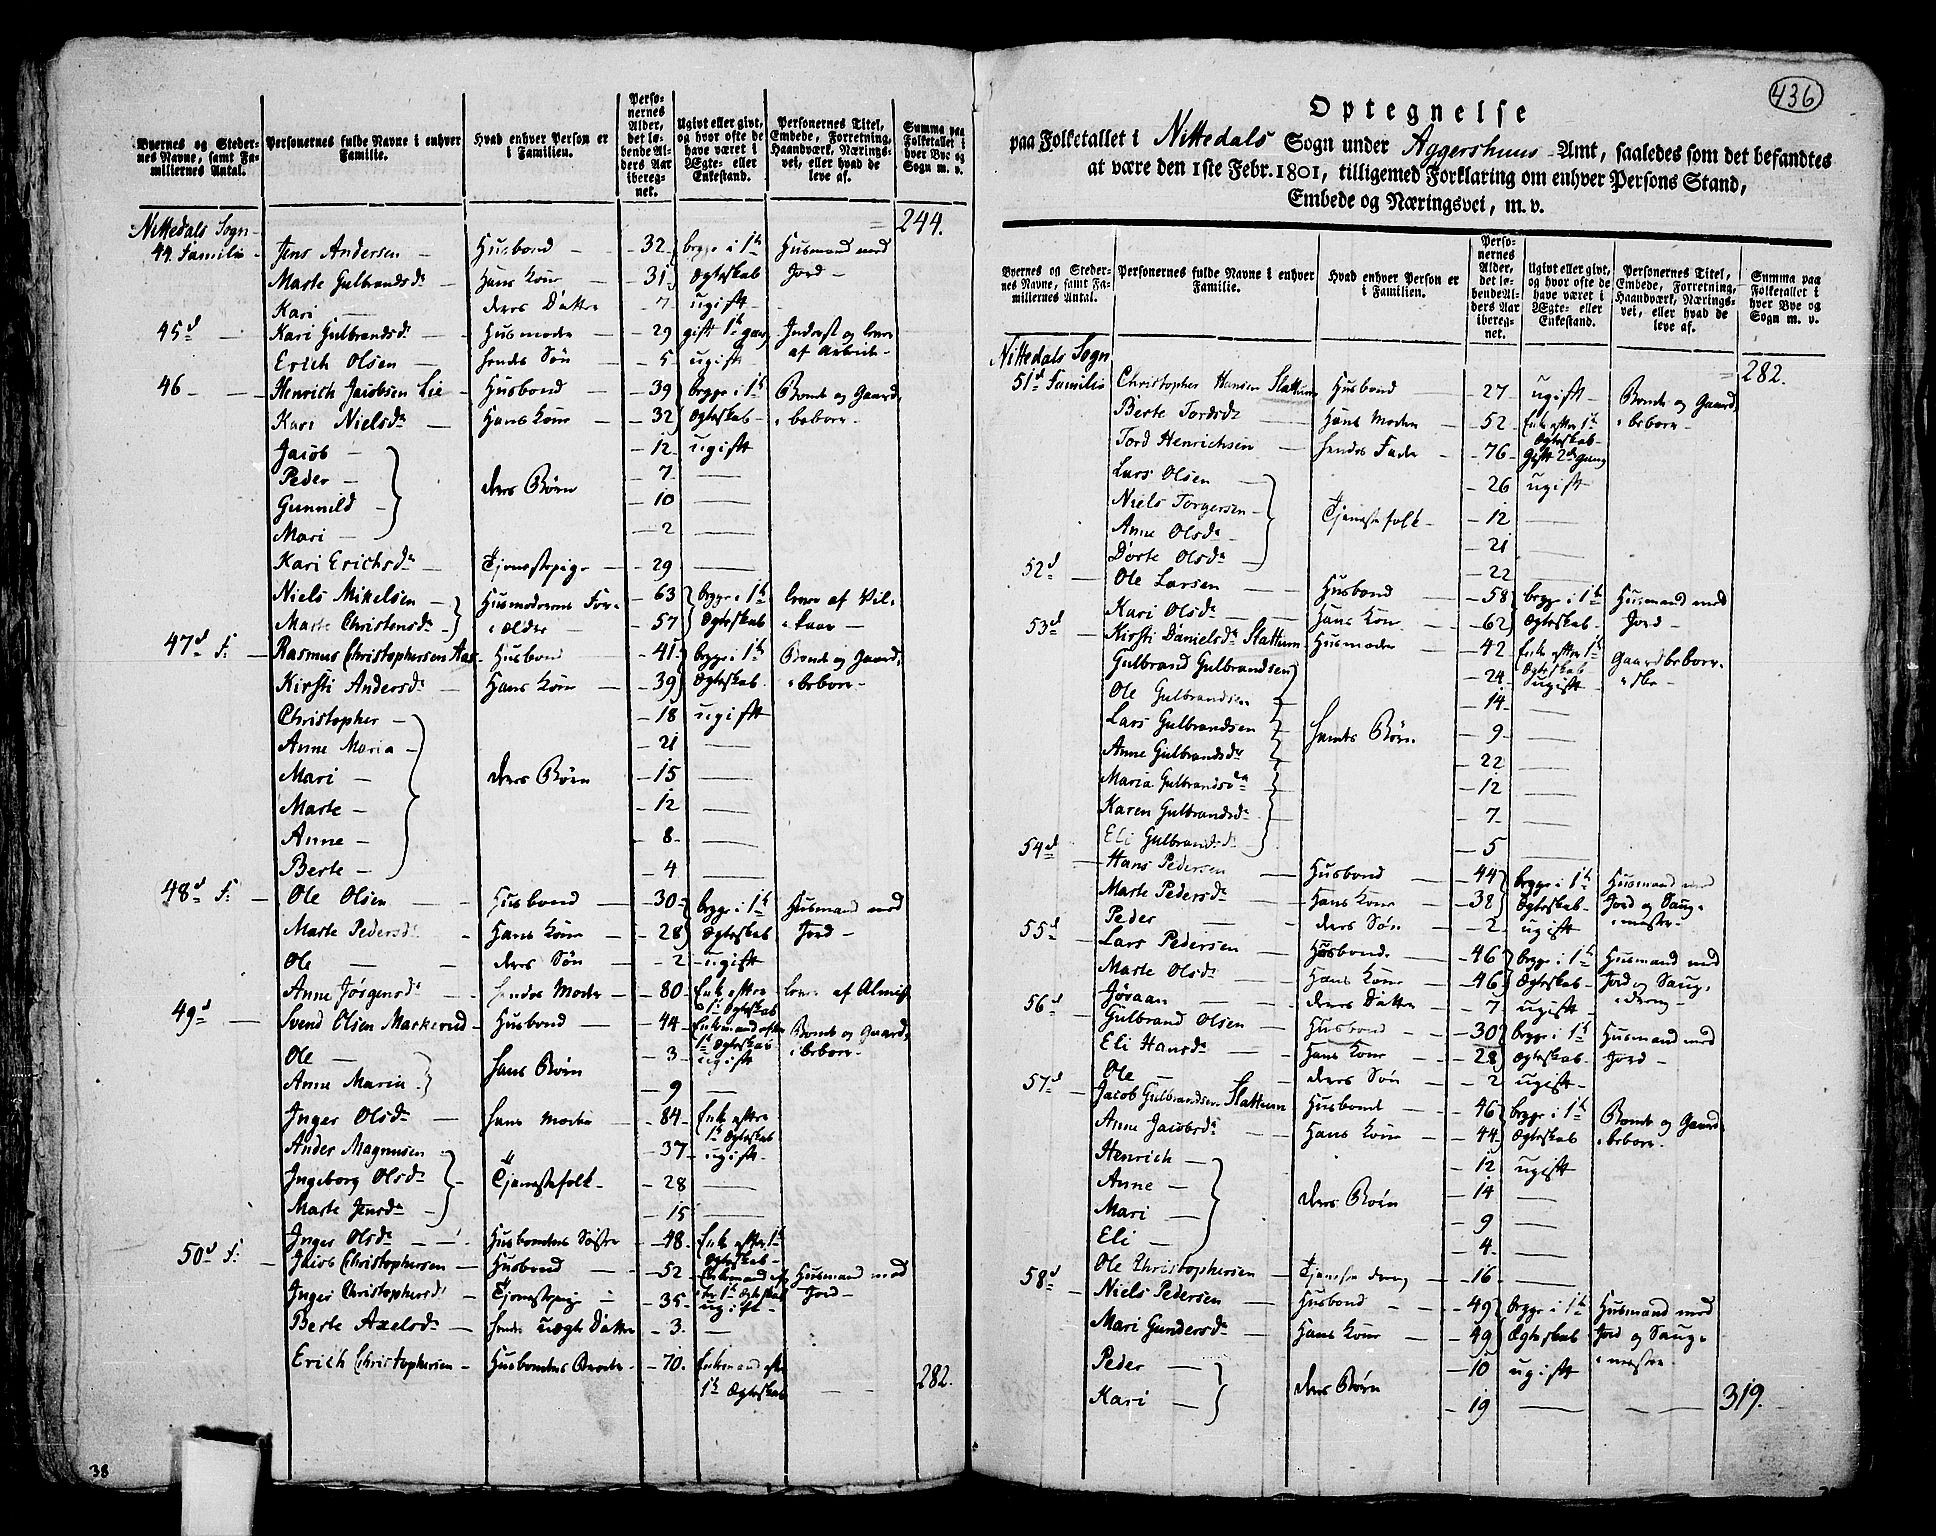 Byernes og Stedernes Navne, samt Familiernes Antal.
Personernes fulde Navne i enhver Familie.
Hvad enhver Person er i Familien.
Personernes Alder, det løbende Alders Aar iberegnet.
Ugivt eller givt, og hvor ofte de have været i Ægte- eller Enkestand.
Personernes Titel, Embede, Forretning, Haandværk, Næringsvei, eller hvad de leve af.
Summa paa Folketallet i hver Bye og Sogn m. v.
Nittedals Sogn 244.
44 Familie - Jens Andersen - Husbond - 32 begge i 1te Husmand med
Marte Gulbrandsdr Hans Kone - 31 Ægteskab Jord -
Kari - deres Datter - 7 ugift
45de - Kari Gulbrandsdr - Husmoder - 29 gift 1te gang Inderst og lever
Erich Olsen - hendes Søn - 5 ugift af Arbeide -
46 - Henrich Jacobsen Lie - Husbond - 39 begge i 1te Bonde og Gaard
Kari Nielsdr - Hans Kone - 32 Ægteskab - beboer -
Jacob - - 12 ugift
Peder - deres Børn - 7 -
Gunnild - - 10 -
Mari - - 2 -
Kari Erichsdr - Tjenestepige - 29 -
Niels Mikelsen - Husmoderens For- - 63 begge i 1te lever af Vil-
Marte Christensdr - ældre - 57 Ægteskab - kaar -
47de F: - Rasmus Christophersen Aas - Husbond - 41 begge i 1te Bonde og Gaard
Kirsti Andersdr - Hans Kone - 39 Ægteskab - beboer -
Christopher - - 18 ugift
Anne Maria - - 21 -
Mari - deres Børn - 15 -
Marte - - 12 -
Anne - - 8 -
Berte - - 4 -
48de F: - Ole Olsen - Husbond - 30 begge i 1te Husmand med
Marte Pedersdr Hans Kone - 28 Ægteskab Jord -
Ole - deres Søn - 2 ugift
Anne Jørgensdr - hendes Moder - 80 Enke efter lever af Almisse
1te Ægteskab
49de - Svend Olsen Markerud - Husbond - 44 Enkemand efter Bonde og Gaard
1te Ægteskab - beboer -
Ole - Hans Børn - 3 ugift
Anne Maria - - 9 -
Inger Olsdr - hans Moder - 84 Enke efter
1te Ægteskab
Ander Magnusen - 37 ugift -
Ingeborg Olsdr - Tjenestefolk - 28 -
Marte Jensdr - - 15 -
Inger Olsdr - Husbondens Søster - 48 Enke efter 1te
Ægteskab -
50de F: - Jacob Christophersen - Husbond - 52 Enkemand ef- Husmand med
ter 1te Ægteskab Jord -
Inger Christophersdr - Tjenestepige - 35 ugift -
Berte Axelsdr - hendes uægte Datter - 3 -
Erich Christophersen - Husbondens Broder - 70 Enkemand efter
1te Ægteskab - 282.
38
436
Optegnelse
paa Folketallet i Nittedals Sogn under Aggershuus-Amt, saaledes som det befandtes
at være den 1ste Febr. 1801, tilligemed Forklaring om enhver Persons Stand,
Embede og Næringsvei, m. v.
Byernes og Stedernes Navne, samt Familiernes Antal.
Personernes fulde Navne i enhver Familie.
Hvad enhver Person er i Familien.
Personernes Alder, det løbende Alders Aar iberegnet.
Ugivt eller givt, og hvor ofte de have været i Ægte- eller Enkestand.
Personernes Titel, Embede, Forretning, Haandværk, Næringsvei, eller hvad de leve af.
Summa paa Folketallet i hver Bye og Sogn m. v.
Nittedals Sogn 282.
51de Familie Christopher Hansen Slattum Husbond - 27 ugift Bonde og Gaard
Berte Tordsdr Hans Moder - 52 Enke efter 1te - beboer -
Ægteskab -
Tord Henrichsen - hendes Fader - 76 Gift 2de gang
Lars Olsen - - 26 ugift
Niels Torgersen - Tjenestefolk - 12 -
Anne Olsdr - - 21 -
Dorte Olsdr - - 22 -
52de - Ole Larsen - Husbond - 58 begge i 1te Husmand med
Kari Olsdr - Hans Kone - 62 Ægteskab - Jord -
53de - Kirsti Danielsdr Slattum Husmoder - 42 Enke efter 1te Gaardbeboer-
Ægteskab - ske -
Gulbrand Gulbrandsen - 24 ugift -
Ole Gulbrandsen - - 14 -
Lars Gulbrandsen - hendes Børn - 9 -
Anne Gulbrandsdr - 22 -
Maria Gulbrandsdr - 12 -
Karen Gulbrandsdr - 7 -
Eli Gulbrandsdr - 5 -
54de - Hans Pedersen - Husbond - 44 begge i 1te Husmand med
Marte Pedersdr - Hans Kone - 38 Ægteskab - Jord og Saug-
Peder - deres Søn - 2 ugift - mester -
55de - Lars Pedersen - Husbond - 46 begge i 1te Husmand med
Marte Olsdr - Hans Kone - 46 Ægteskab - Jord og Saug-
Jøraan - deres Datter - 7 ugift - dreng -
56de - Gulbrand Olsen - Husbond - 30 begge i 1te Husmand med
Eli Hansdr - Hans Kone - 28 Ægteskab - Jord -
Ole - deres Søn - 2 ugift -
57de - Jacob Gulbrandsen Slattum Husbond - 46 begge i 1te Bonde og Gaard
Anne Jacobsdr - Hans Kone - 44 Ægteskab - beboer -
Henrich - - 12 ugift
Anne - deres Børn - 14 -
Mari - - 9 -
Eli - - 4 -
Ole Christophersen - Tjeneste dreng - 16 -
58de - Niels Pedersen - Husbond - 49 begge i 1te Husmand med
Mari Gundersdr - Hans Kone - 49 Ægteskab Jord og Saug-
Peder - deres Børn - 10 ugift - mester -
Kari - - 19 - 319.